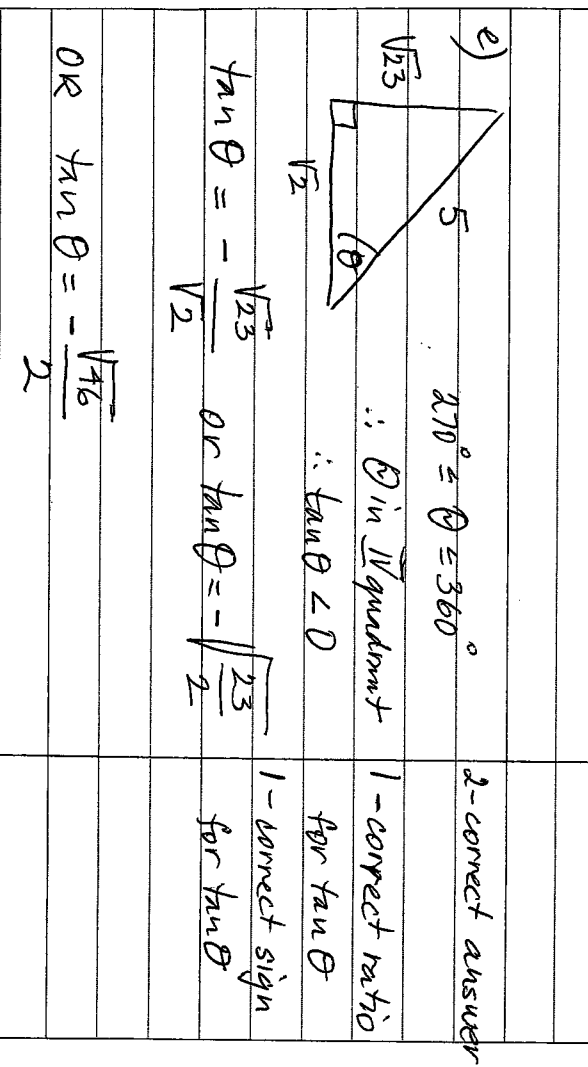 e)
√23
5
√2
θ
270° ≤ θ ≤ 360°
∴ θ in IV quadrant
∴ tanθ < 0
tanθ = -√23/√2 or tanθ = -√(23/2)
OR tanθ = -√46/2
2-correct answer
1-correct ratio
for tanθ
1-correct sign
for tanθ